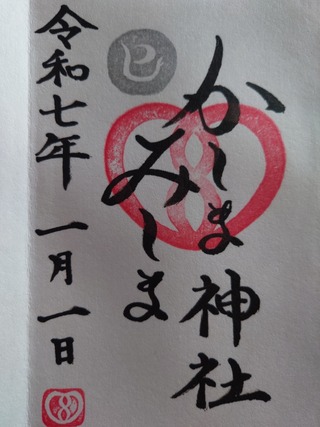 かしま神社
みしま
巳
令和七年 一月一日